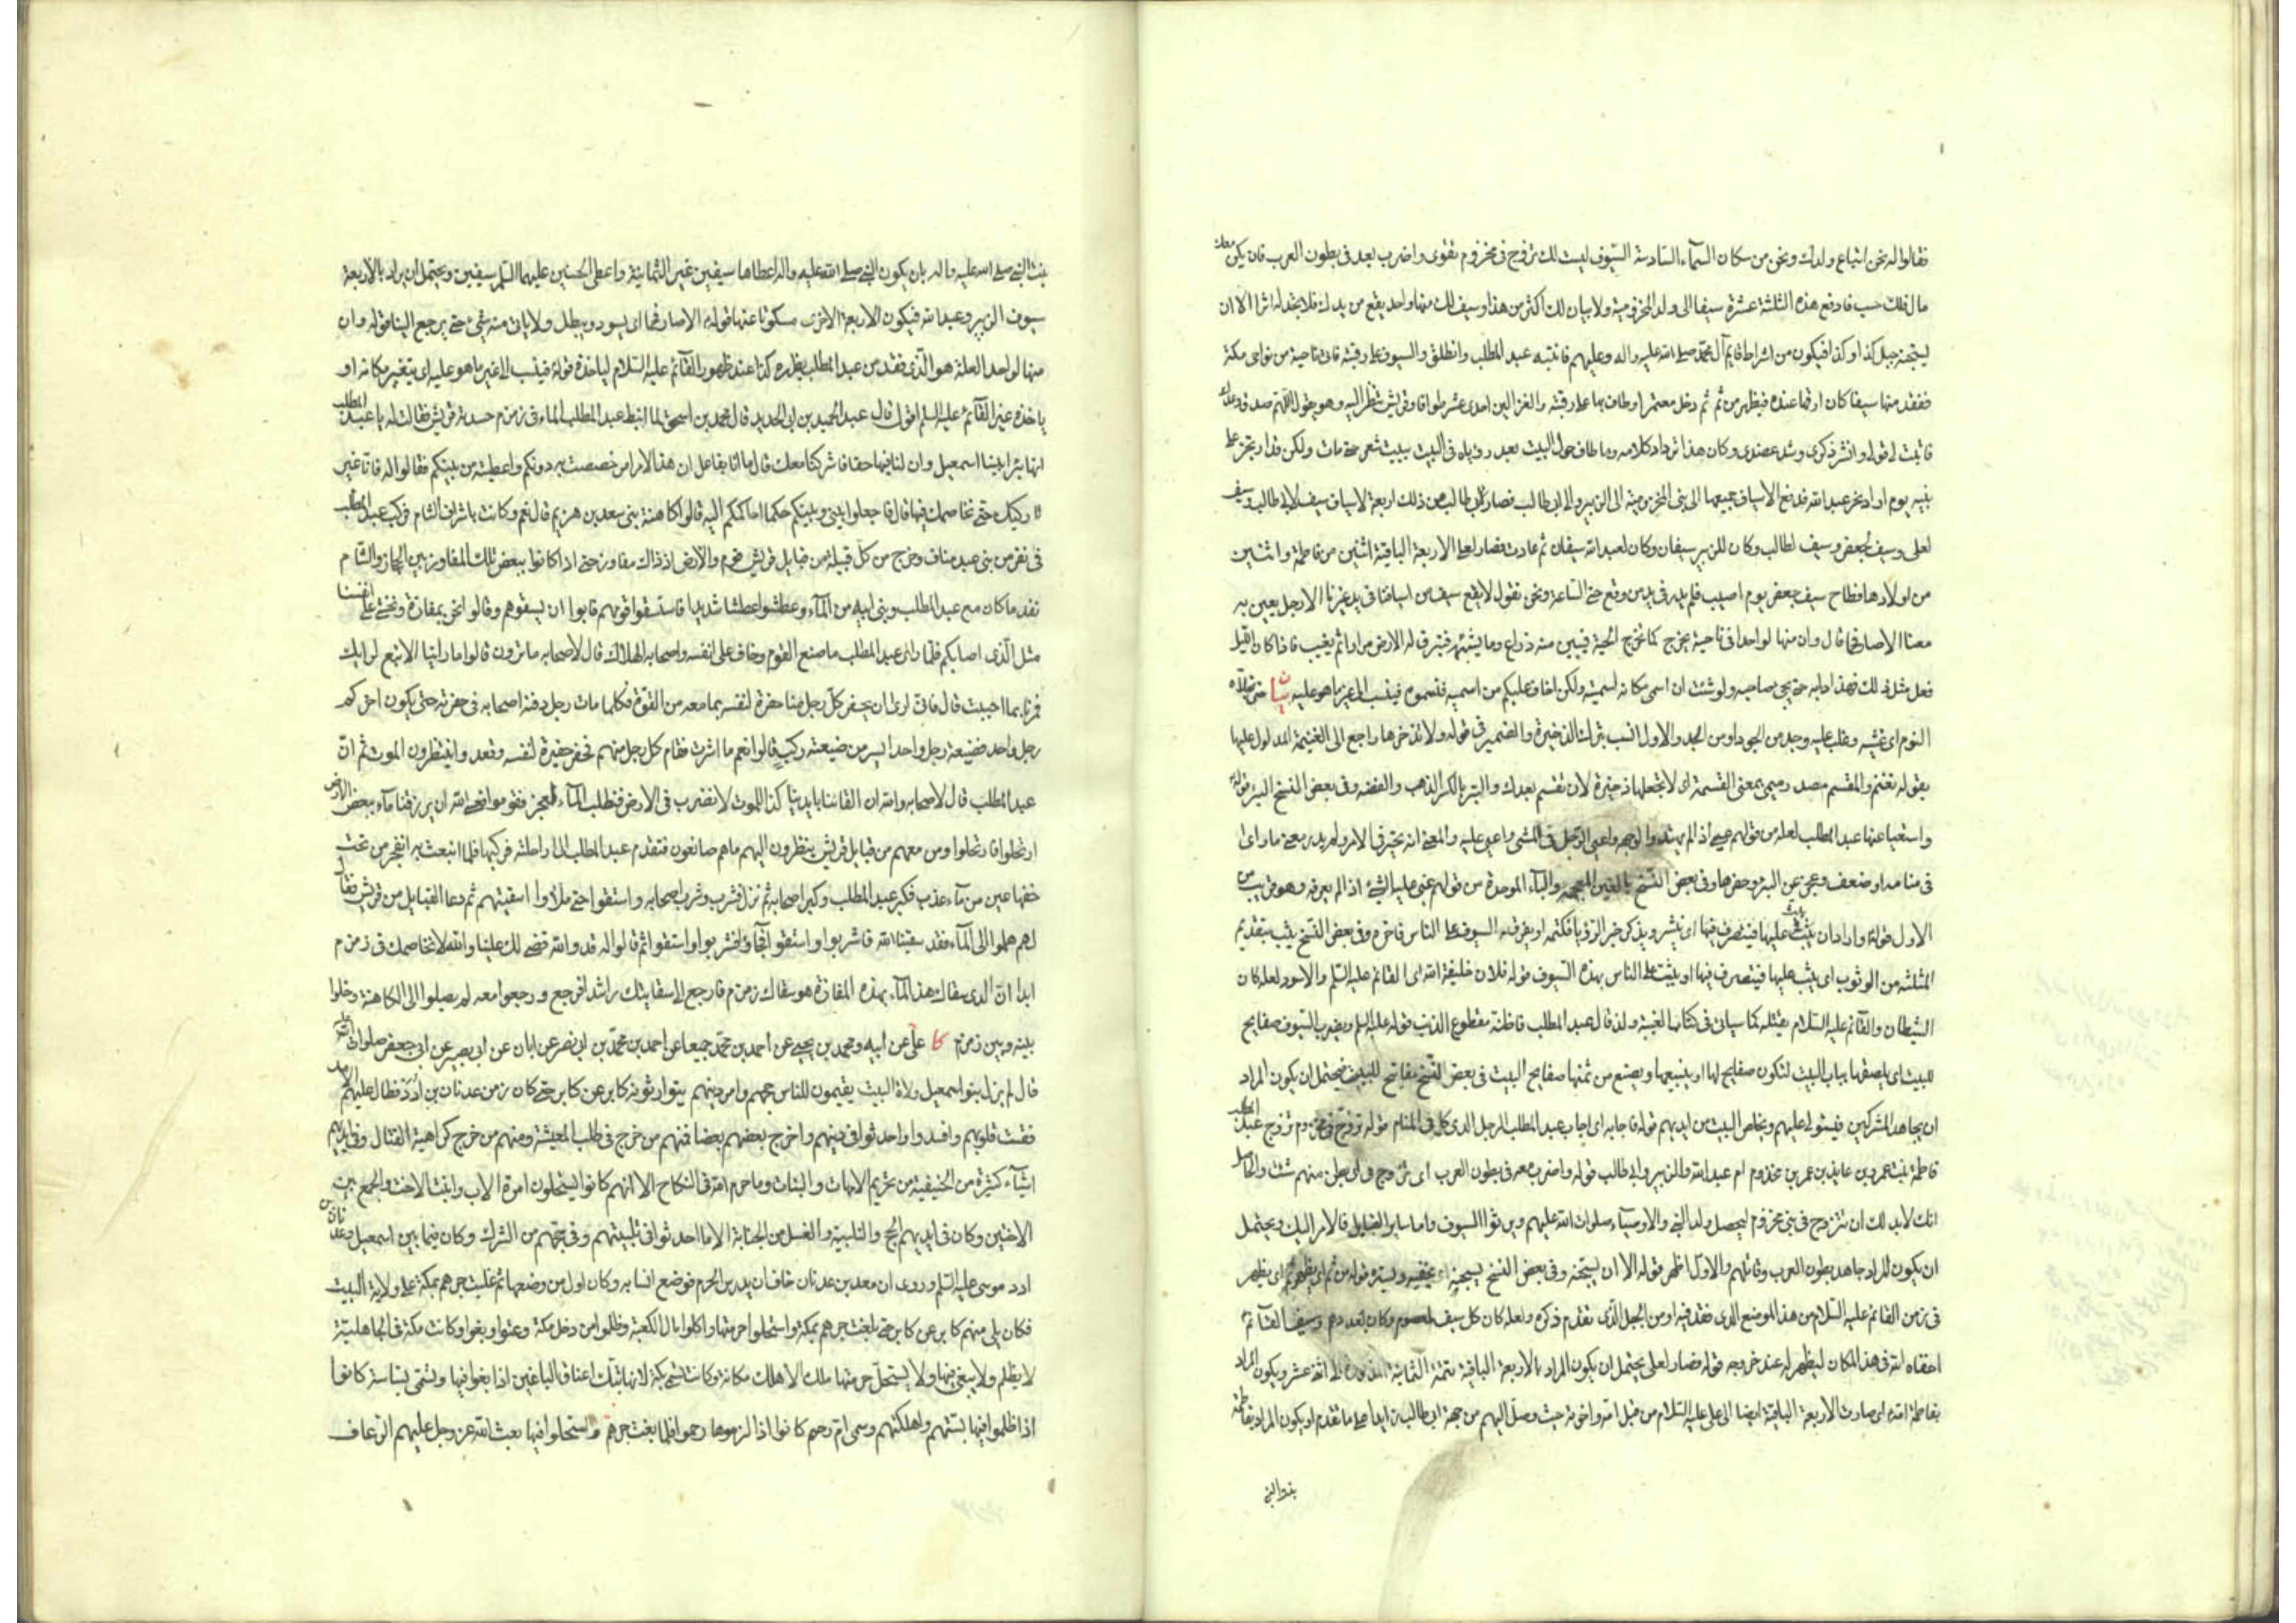 فقالوا له نحن اتباع ولدك ونحن من سكان السماء السادسة السيوف ليست لك تزوج في مخزوم تقوى واضرب بعد في بطون العرب فان لم يكن معك
مال فلك حسب فادفع هذه الثلثة عشرة سيفا الى ولد المخزومية ولا يبان لك اكثر من هذا وسيف لك منها واحد يقع من يدك فلا تجد له اثرا الا ان
يستجنه جبل كذا وكذا فيكون من اشراط قايم آل محمد صلى الله عليه واله وعليهم فانتبه عبد المطلب وانطلق والسيوف على رقبته فاتى ناحية من نواحى مكة
ففقد منها سيفا كان ارقها عنده فيظهر من ثم ثم دخل معتمرا وطاف بها على رقبته والغزالين احدى عشر طوافا وقريش تنظر اليه وهو يقول اللهم صدق وعدك
فاثبت لى قولى وانشر ذكرى وشد عضدى وكان هذا ترداد كلامه وما طاف حول البيت بعد رؤياه فى البيت ببيت شعر حتى مات ولكن قد ارتجز على
بنيه يوم اراد نحر عبد الله فدفع الاسياف جميعها الى بنى المخزومية الى الزبير والى ابى طالب فصار لابى طالب من ذلك اربعة اسياف سيف لابى طالب وسيف
لعلى وسيف لجعفر وسيف لطالب وكان للزبير سيفان وكان لعبد الله سيفان ثم عادت فصار لعلى الاربعة الباقية اثنين من فاطمة واثنين
من اولادها فطاح سيف جعفر يوم اصيب فلم يدر فى يد من وقع حتى الساعة ونحن نقول لا يقع سيف من اسيافنا فى يد غيرنا الا رجل يعين به
معنا الا صار فحما قال وان منها لواحدا فى ناحية يخرج كما تخرج الحية فيبين منه ذراع وما يشبهه فتبرق له الارض مرارا ثم يغيب فاذا كان الليل
فعل مثل ذلك فهذا دابه حتى يجئ صاحبه ولو شئت ان اسمى مكانه لسميته ولكن اخاف عليكم من ان اسميه فتسموه فينسب الى غير ما هو عليه بيان
النوم اى غشيه وغلب عليه وجد من الجود او من الجد والاول انسب بترك الذخيرة والضمير فى قوله ولا تذخرها راجع الى الغنيمة المدلول عليها
بقوله تغنم والمقسم مصدر ميمى بمعنى القسمة اى لا تجعلها ذخيرة لان تقسم بعدك والتبر بالكسر الذهب والفضة وفى بعض النسخ البئر قوله
واستعيا عنها عبد المطلب لعله من قولهم عيى اذا لم يهتد لوجهه واعيى الرجل فى المشى واعيى عليه والمعنى انه تحير فى الامر ولم يدر معنى ما راى
فى منامه او ضعف وعجز عن البئر وحفرها وفى بعض النسخ بالغين المعجمة والباء الموحدة من قولهم غبى عليه الشئ اذا لم يعرفه وهو قريب من
الاول قوله واراد ان يبث عليها فيتصرف فيها اى ينشر ويذكر خبر الرؤيا فكتمه او يفرق السيوف على الناس فاخره وفى بعض النسخ يثب بتقديم
المثلثة من الوثوب اى يثب عليها فيتصرف فيها او يثبت على الناس بهذه السيوف قوله فلان خليفة الله اى القائم عليه السلام والاسود لعله كان
الشيطان والقائم عليه السلام يقتله كما سياتى فى كتاب الغيبة ولذا قال لعبد المطلب فاظنه مقطوع الذنب قوله عليه السلام ويضرب السيوف صفايح
للبيت اى يلصقها بباب البيت لتكون صفايح لها او يبيعها ويصنع من ثمنها صفايح البيت فى بعض النسخ مفاتح للبيت فيحتمل ان يكون المراد
ان يجاهد المشركين فيستولى عليهم ويخلص البيت من ايديهم قوله فاجابه اى اجاب عبد المطلب الرجل الذى كلمه فى المنام قوله تزوج فى مخزوم تزوج عبد المطلب
فاطمة بنت عمرو بن عايذ بن عمر بن مخزوم ام عبد الله والزبير وابى طالب قوله واضرب بعد فى بطون العرب اى تزوج فى اى بطن منهم شئت والحاصل
انك لا بد لك ان تتزوج فى بنى مخزوم ليحصل ولد النبى والاوصياء صلوات الله عليهم ويرثوا السيوف واما ساير القبايل فالامر اليك ويحتمل
ان يكون المراد جاهد بطون العرب وقاتلهم والاول اظهر قوله الا ان يستجنه وفى بعض النسخ يسجنه اى يخفيه ويستره قوله من ثم اى يظهر
فى زمن القائم عليه السلام من هذا الموضع الذى فقد فيه او من الجبل الذى تقدم ذكره ولعله كان كل سيف لمعصوم وكان بعددهم وسيف القائم
اخفاه الله فى هذا المكان ليظهر له عند خروجه قوله فصار لعلى يحتمل ان يكون المراد بالاربعة الباقية تتمة الثمانية المذكورة الى اثنى عشر ويكون المراد
بفاطمة امه اى صارت الاربعة الباقية ايضا الى على عليه السلام من قبل امه واخوته حيث وصل اليهم من جهة ابى طالب ايضا على ما تقدم او يكون المراد بفاطمة
بنت النبى
بنت النبى صلى الله عليه واله بان يكون النبى صلى الله عليه واله اعطاها سيفين غير الثمانية واعطى الحسنين عليهما السلام سيفين ويحتمل ان يراد بالاربعة
سيوف الزبير وعبد الله فيكون الاربعة الاخرى مسكوتا عنها قوله الا صار فحما اى يسود ويبطل ولا ياتى منه شئ حتى يرجع الينا قوله وان
منها لواحدا لعله هو الذى فقد من عبد المطلب يظهره كذا عند ظهور القائم عليه السلام لياخذه قوله فينسب الى غير ما هو عليه اى يتغير مكانه او
ياخذه غير القائم عليه السلام اقول قال عبد الحميد بن ابى الحديد قال محمد بن اسحق لما انبط عبد المطلب الماء فى زمزم حسدته قريش فقالت له يا عبد المطلب
انها بئر ابينا اسمعيل وان لنا فيها حقا فاشركنا معك قال ما انا بفاعل ان هذا الامر امر خصصت به دونكم واعطيته من بينكم فقالوا له فانا غير
تاركيك حتى نخاصمك فيها قال فاجعلوا بينى وبينكم حكما احاكمكم اليه قالوا كاهنة بنى سعد بن هزيم قال نعم وكانت باشراف الشام فركب عبد المطلب
فى نفر من بنى عبد مناف وخرج من كل قبيلة من قبايل قريش قوم والارض اذ ذاك مفاوز حتى اذا كانوا ببعض تلك المفاوز بين الحجاز والشام
نفد ما كان مع عبد المطلب وبنى ابيه من الماء وعطشوا عطشا شديدا فاستسقوا قومهم فابوا ان يسقوهم وقالوا نحن بمفازة ونخشى على انفسنا
مثل الذى اصابكم فلما راى عبد المطلب ما صنع القوم وخاف على نفسه واصحابه الهلاك قال لاصحابه ما ترون قالوا ما راينا الا تبع لرايك
فمرنا بما احببت قال فانى ارى ان يحفر كل رجل منا حفرة لنفسه بما معه من القوة فكلما مات رجل دفنه اصحابه فى حفرته حتى يكون اخركم
رجل واحد فضيعة رجل واحد ايسر من ضيعة ركب قالوا نعم ما اشرت فقام كل رجل منهم فحفر حفيرة لنفسه وقعدوا ينتظرون الموت ثم ان
عبد المطلب قال لاصحابه والله ان القائنا بايدينا كذا للموت لا نضرب فى الارض فنطلب الماء لعجز فقوموا فعسى الله ان يرزقنا ماء ببعض الارض
ارتحلوا فارتحلوا ومن معهم من قبايل قريش ينظرون اليهم ما هم صانعون فتقدم عبد المطلب الى راحلته فركبها فلما انبعثت به انفجر من تحت
خفها عين من ماء عذب فكبر عبد المطلب وكبر اصحابه ثم نزل فشرب وشرب اصحابه واستقوا حتى ملاوا اسقيتهم ثم دعا القبايل من قريش فقال
لهم هلموا الى الماء فقد سقينا الله فاشربوا واستقوا فجاؤا فشربوا واستقوا ثم قالوا له قد والله قضى لك علينا والله لا نخاصمك فى زمزم
ابدا ان الذى سقاك هذا الماء بهذه المفازة هو سقاك زمزم فارجع الى سقايتك راشدا فرجع ورجعوا معه لم يصلوا الى الكاهنة وخلوا
بينه وبين زمزم كا على عن ابيه ومحمد بن يحيى عن احمد بن محمد جميعا عن احمد بن محمد بن ابى نصر عن ابان عن ابى بصير عن ابى جعفر صلوات الله عليه
قال لم يزل بنو اسمعيل ولاة البيت يقيمون للناس حجهم وامر دينهم يتوارثونه كابر عن كابر حتى كان زمن عدنان بن أدد فطال عليهم الامد
فقست قلوبهم وافسدوا واحدثوا فى دينهم واخرج بعضهم بعضا فمنهم من خرج فى طلب المعيشة ومنهم من خرج كراهية القتال وفى ايديهم
اشياء كثيرة من الحنيفية من تحريم الامهات والبنات وما حرم الله فى النكاح الا انهم كانوا يستحلون امرة الاب وابنت الاخت والجمع بين
الاختين وكان فى ايديهم الحج والتلبية والغسل من الجنابة الا ما احدثوا فى تلبيتهم وفى حجهم من الشرك وكان فيما بين اسمعيل وعدنان بن
ادد موسى عليه السلم وروى ان معد بن عدنان خاف ان يدرس الحرم فوضع انصابه وكان اول من وضعها ثم غلبت جرهم بمكة على ولاية البيت
فكان يلى منهم كابر عن كابر حتى بغت جرهم بمكة واستحلوا حرمتها واكلوا مال الكعبة وظلموا من دخل مكة وعتوا وبغوا وكانت مكة فى الجاهلية
لا يظلم ولا يبغى فيها ولا يستحل حرمتها ملك الا هلك مكانه وكانت تسمى بكة لانها تبك اعناق الباغين اذا بغوا فيها وتسمى بساسة كانوا
اذا ظلموا فيها بستهم واهلكتهم وسمى ام رحم كانوا اذا لزموها رحموا فلما بغت جرهم واستحلوا فيها بعث الله عز وجل عليهم الرعاف